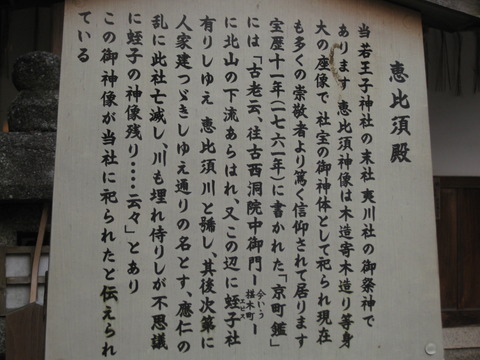 恵比須殿
当若王子神社の末社 夷川社の御祭神で
あります 恵比須神像は木造寄木造り等身
大の座像で 社宝の御神体として祀られ現在
も多くの崇敬者より篤く信仰されて居ります
宝暦十一年(一七六一年)に書かれた「京町鑑」
には「古老云、往古西洞院中御門ー今いう椹木町ー
に北山の下流あらはれ、又この辺に蛭子社エビス
有りしゆえ 恵比須川と號し、其後次第に
人家建つゞきしゆえ通りの名とす、應仁の
乱に此社亡滅し、川も埋れ侍りしが不思議
に蛭子の神像残り・・・・云々」とあり
この御神像が当社に祀られたと伝えられ
ている